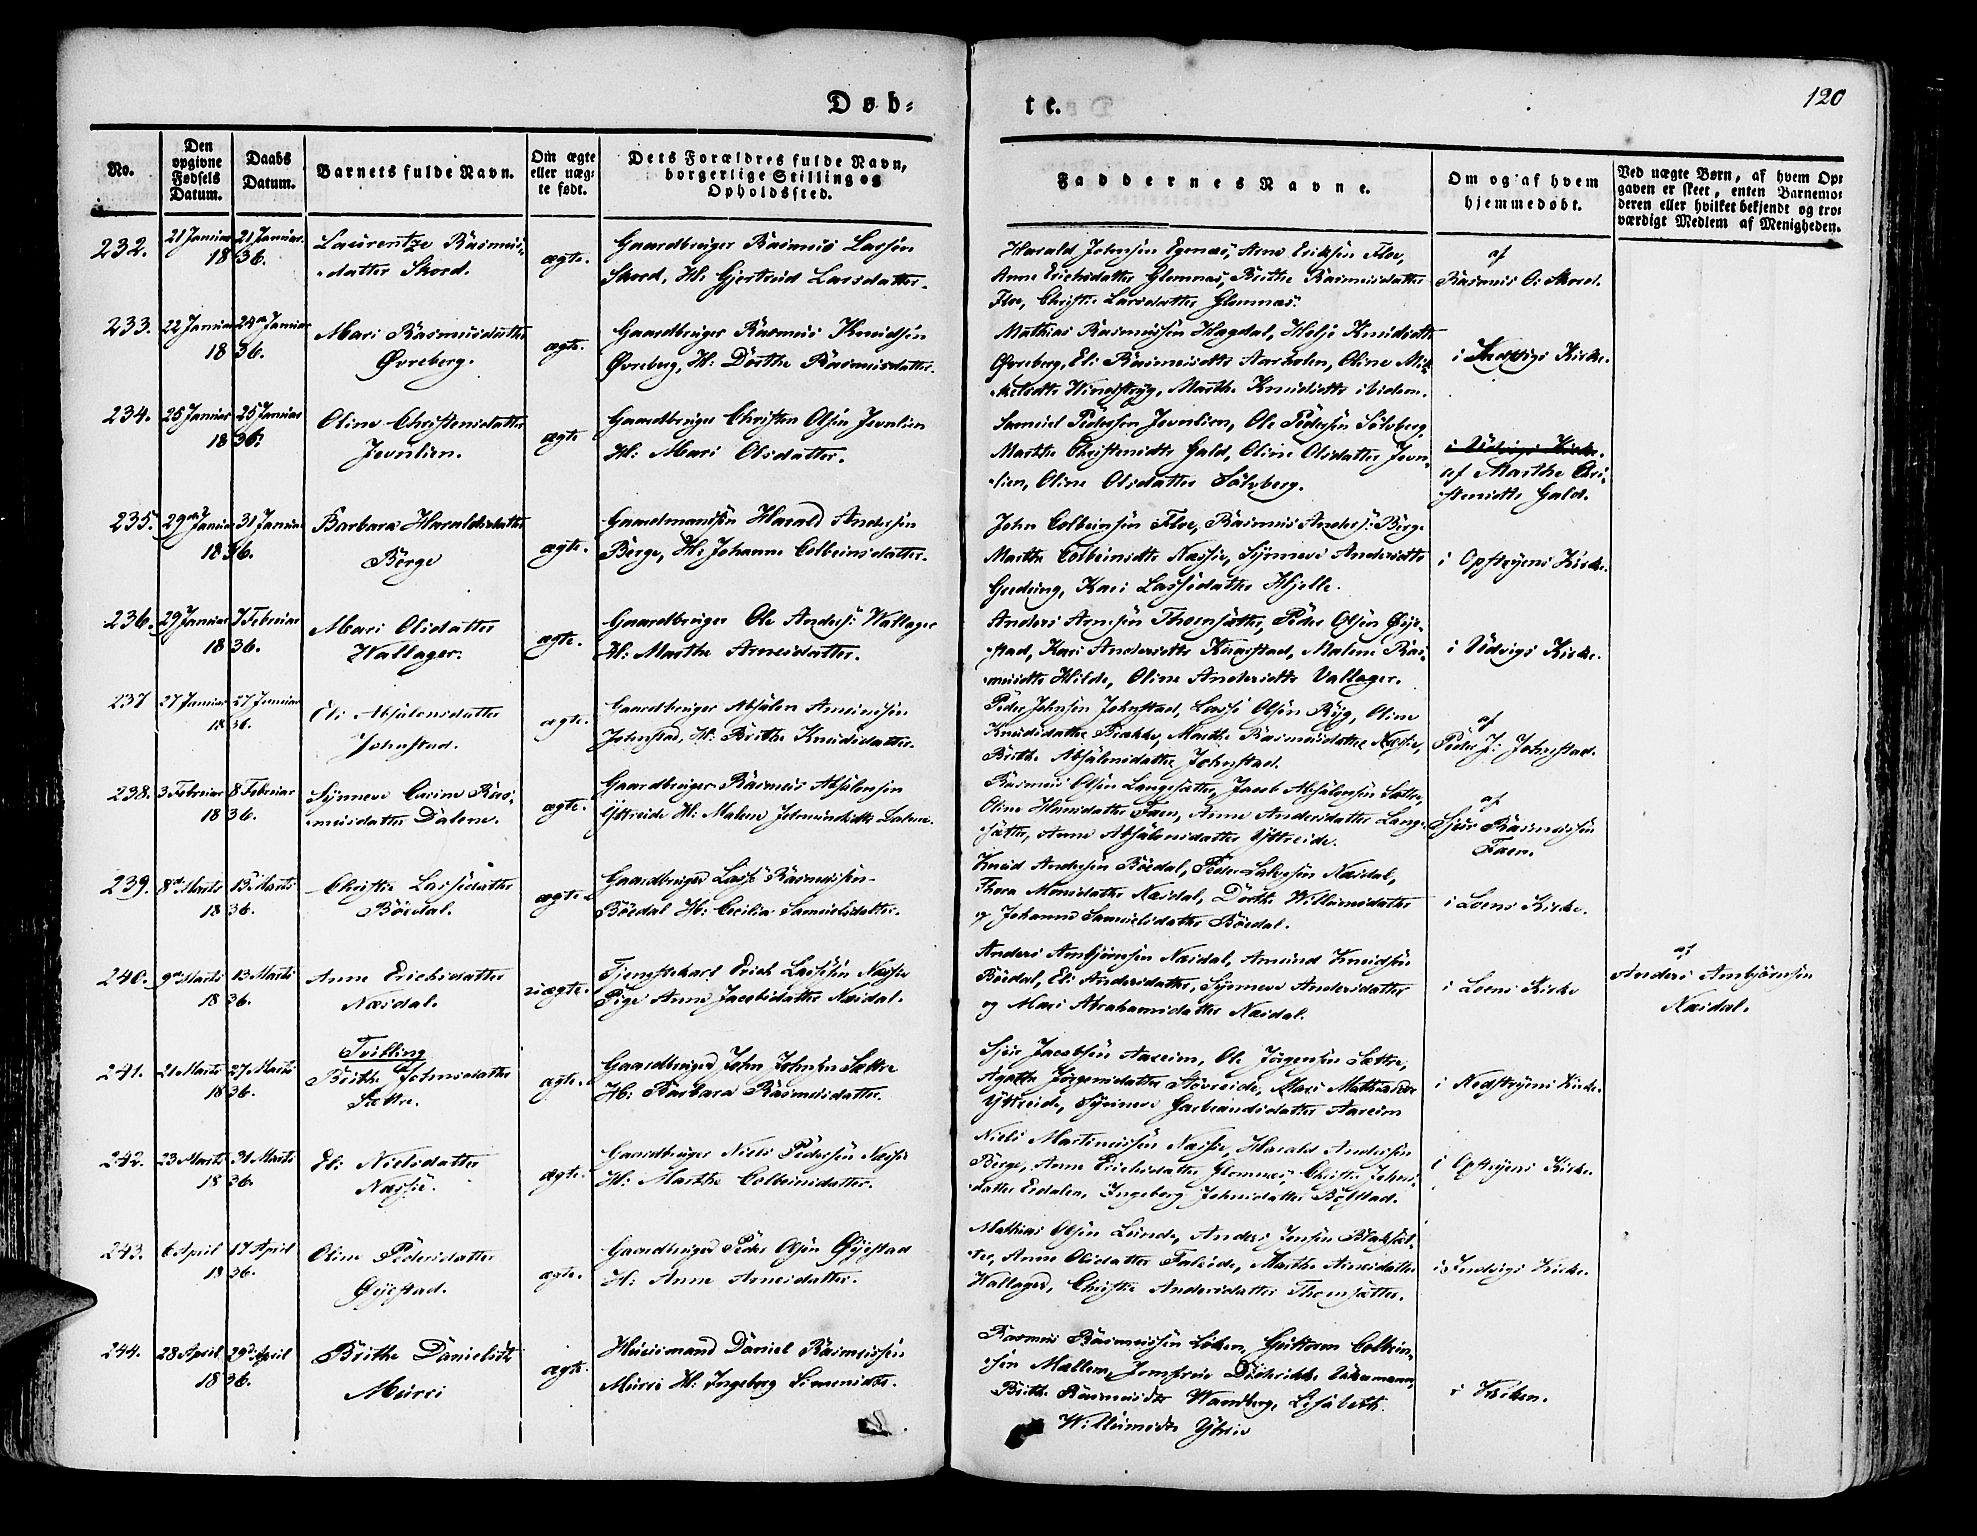 Døb-
te.
120
No.
Den opgivne Fødsels Datum.
Daabs Datum.
Barnets fulde Navn.
Om ægte eller uæg-
te født.
Dets Forældres fulde Navn,
borgerlige Stilling og
Opholdssted.
Faddernes Navne.
Om og af hvem
hjemmedøbt.
Ved uægte Børn, af hvem Op-
gaven er skeet, enten Barnemo-
deren eller hvilket bekjendt og tro-
værdigt Medlem af Menigheden.
232. 21 Januar 21 Januar
1836.
Laurentze Rasmus-
datter Skord.
ægte.
Gaardbruger Rasmus Larsen
Skord, H: Gjertrud Larsdatter.
Harald Johnsen Egenæs, Arne Eriksen Floe,
Anne Erichsdatter Glomnæs, Brithe Rasmusdatter
Floe, Christi Larsdatter Glomnæs.
af
Rasmus O: Skord.
233. 22 Januar 24 Januar
1836.
Mari Rasmusdatter
Øvreberg.
ægte.
Gaardbruger Rasmus Knudsen
Øvreberg, H: Dorthe Rasmusdatter.
Mathias Rasmussen Hagdal, Helje Knudsdtr
Øvreberg, Eli Rasmusdtr Aarholen, Oline Mik-
kelsdtr, Marthe Knudsdtr ibidem.
i Indvigs Kirke.
234. 25 Januar 25 Januar
1836.
Oline Christensdatter
Jevnlien.
ægte
Gaardbruger Christen Olsen Jevnlien
H: Mari Olsdatter.
Samuel Pedersen Jevnlien, Ole Pedersen Sølvberg,
Marthe Christensdtr Gald, Oline Olsdatter Jevn-
lien, Oline Olsdatter Sølvberg.
i Udvigs Kirke.
af Marthe Chri-
stensdtr Gald.
235. 29de Januar 31 Januar
1836.
Barbara Haraldsdatter
Børge
ægte.
Gaardmandsen Harald Andersen
Børge, H: Johanne Colbeinsdatter.
John Colbeinsen Floe, Rasmus Anders: Børge
Marthe Colbeinsdtr Næsse, Synneve Andersdtr
Gredung, Kari Lassedatter Hjelle.
i Opstryens Kirke.
236. 29 Januar 7 Februar
1836.
Mari Olsdatter
Wallager.
ægte.
Gaardbruger Ole Anders: Wallager
H: Marthe Arnesdatter.
Anders Arnesen Thomsætter, Peder Olsen Øye-
stad, Kari Andersdtr Kaarstad, Malene Ras-
musdtr Hilde, Oline Andersdtr Vallager.
i Udvigs Kirke.
237 27 Januar 27 Januar
1836.
Eli Absalonsdatter
Johnstad.
ægte.
Gaardbruger Absalon Amundsen
Johnstad, H: Brithe Knudsdatter.
Peder Johnsen Johnstad, Lasse Olsen Ryg, Oline
Knudsdatter, Marthe Rasmusdatter Næsse,
Brithe Absalonsdatter Johnstad.
af
Peder J: Johnstad.
238. 3 Februar 8 Februar
1836.
Synneve Carine Ras-
musdatter Dalene.
ægte.
Gaardbruger Rasmus Absalonsen
Ytreide H: Malene Dalene.
Rasmus Olsen Langesætter, Jacob Absalonsen Sættre,
Oline Hansdatter Faen, Anne Andersdatter Lang-
sætter, Anne Absalonsdatter Ytreide.
af
Sjur Rasmussen
Faen.
239. 8de Marts 13 Marts
1836.
Christie Lassedatter
Bødal.
ægte.
Gaardbruger Lasse Rasmussen
Bødal H: Cecilia Samuelsdatter.
Knud Andersen Bødal, Peder Næsdal,
Thora Monsdatter Næsdal, Dorthe Willumsdatter
og Johanne Samuelsdatter Bødal.
i Loens Kirke.
240. 9de Marts 13 Marts
1836.
Anne Erichsdatter
Næsdal.
uægte.
Tjenestekarl Erich Lassesen Næsse
Pige Anne Jacobsdatter Næsdal.
Anders Ambjørnsen Næsdal, Amund Knudsen
Bødal, Eli Andersdatter, Synneve Andersdatter
og Mari Abrahamsdatter Næsdal.
i Loens Kirke
af
Anders Ambjørnsen
Næsdal.
241. 21 Marts 27 Marts
1836.
Tvilling
Brithe Johnsdatter
Sættre.
ægte.
Gaardbruger John Johnsen Sættre
H: Barbara Rasmusdatter.
Sjur Jacobsen Aareim, Ole Jørgensen Sættre,
Agathe Jørgensdatter Støvreide, Mari Mathiasdtr
Ytreide, Synneve Gerbrandsdatter Aareim
i Nedstryens Kirke.
242. 23 Marts 31 Marts
1836.
Eli Nielsdatter
Næsse.
ægte.
Gaardbruger Niels Pedersen Næsse
H: Marthe Colbeinsdatter.
Niels Martinussen Næsse, Harald Andersen
Børge, Anne Erichsdatter Glomnæs, Christi Johns-
datter Erdalen, Ingeborg Johnsdatter Bolstad.
i Opstryens Kirke.
243. 6 April 17 April
1836.
Oline Pedersdatter
Øyestad.
ægte.
Gaardbruger Peder Olsen Øyestad
H: Anne Arnesdatter.
Mathias Olsen Lunde, Anders Jensen Blaksæt-
ter, Anne Olsdatter Faleide, Marthe Arnesdatter
Wallager, Christie Andersdatter Thomsætter.
i Indvigs Kirke.
244. 28 April 29 April
1836.
Brithe Danielsdtr
Muri
ægte.
Huusmand Daniel Rasmussen
Muri H: Ingeborg Simensdtr.
Rasmus Rasmussen Løken, Guttorm Colbein-
sen Mællem, Jomfrue Diderikke,
Brithe Rasmusdtr Wamberg, Lisabeth
Willumsdtr Ytrie
i Kirken.